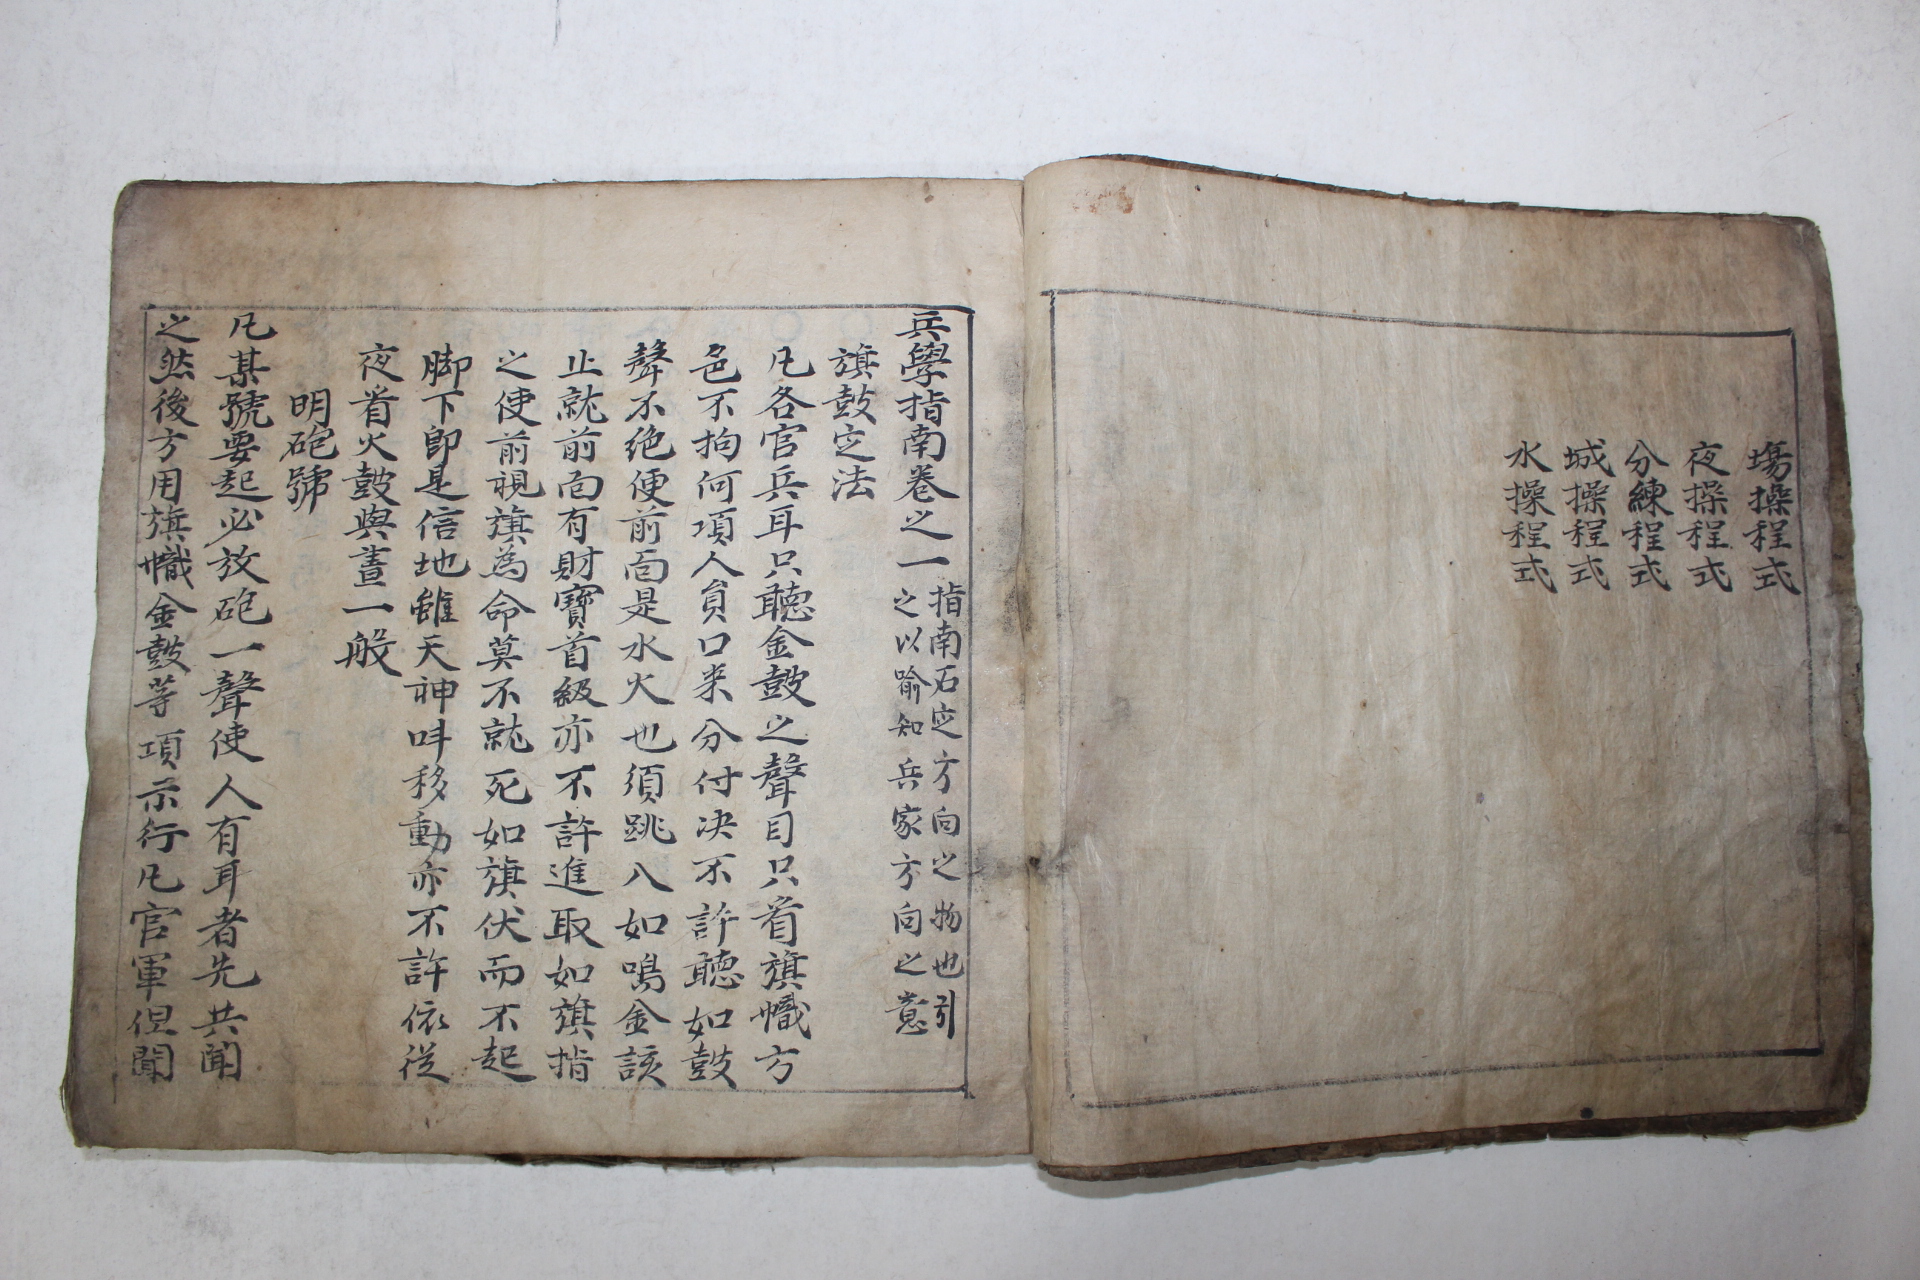 塲操程式
夜操程式
分練程式
城操程式
水操程式
兵學指南卷之一
指南石定方向之物也引
之以喻知兵家方向之意
旗鼓定法
凡各官兵耳只聽金鼓之聲目只看旗幟方
色不拘何項人負口来分付决不許聽如鼓
聲不絶便前面是水火也須跳入如鳴金該
止就前面有財寶首級亦不許進取如旗指
之使前視旗為命莫不就死如旗伏而不起
脚下即是信地雖天神呌移動亦不許依從
夜看火鼓與晝一般
明砲號
凡某號要起必放砲一聲使人有耳者先共聞
之然後方用旗幟金鼓等項示行凡官軍但聞